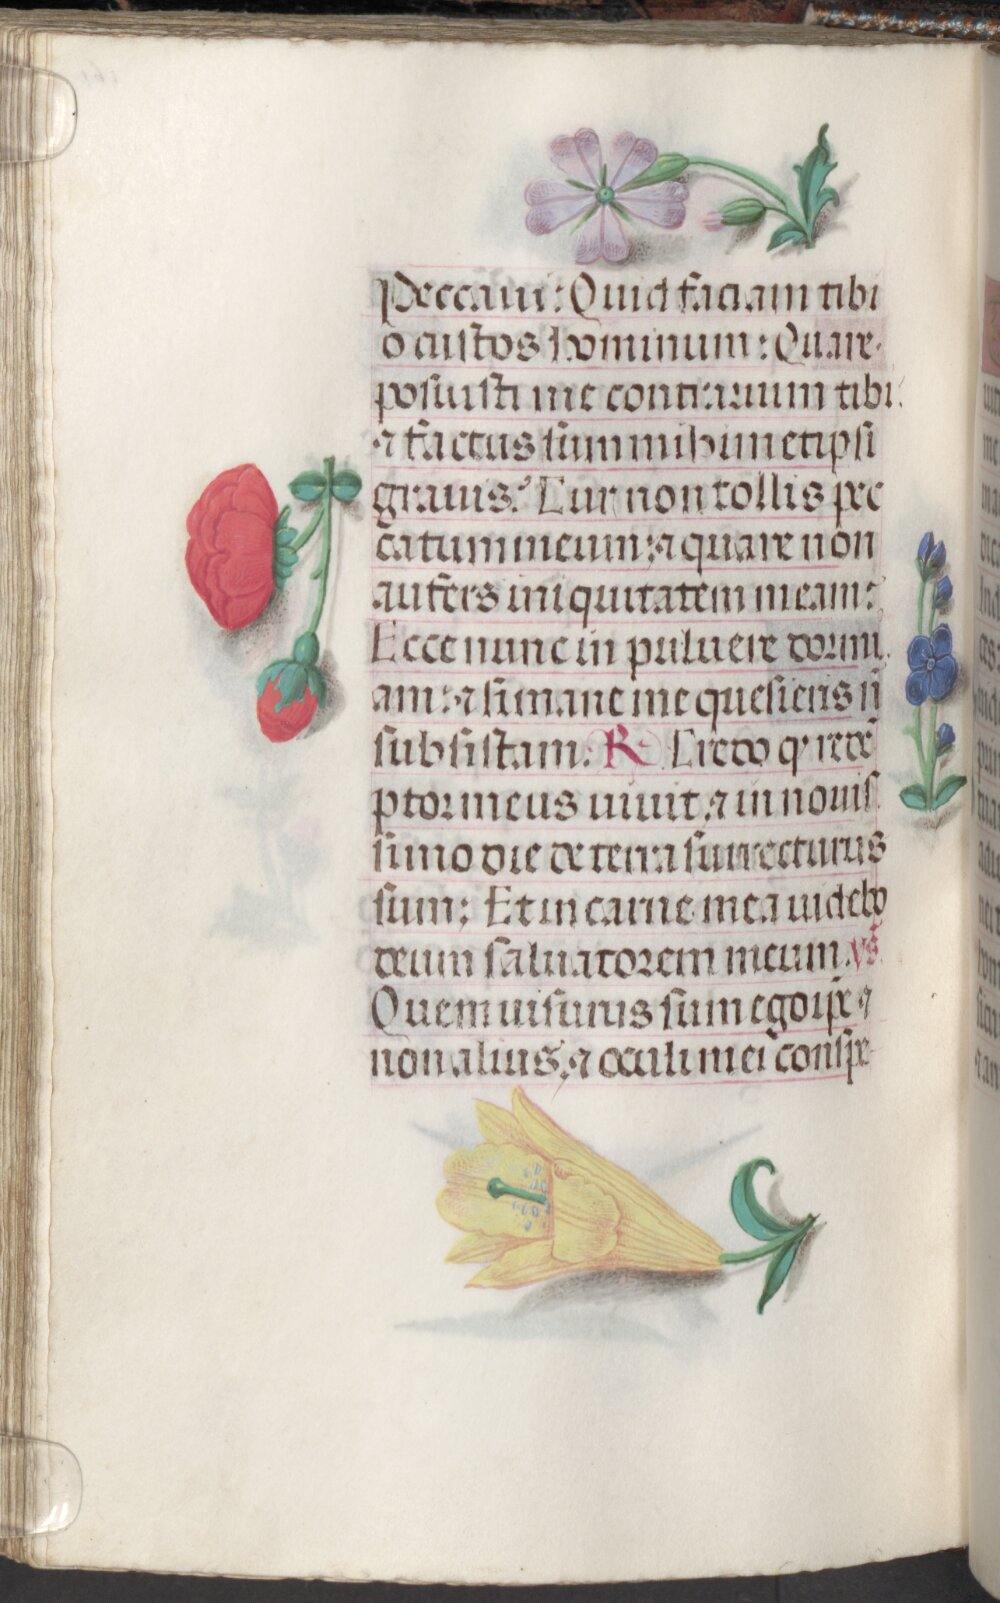 Peccaui: Quid faciam tibi
o custos hominum: Quare
posuisti me contrarium tibi:
⁊ factus sum mihimetipsi
grauis? Cur non tollis pec
catum meum: ⁊ quare non
aufers iniquitatem meam:
Ecce nunc in puluere dormi
am: ⁊ si mane me quesieris ñ
subsistam. R Credo ꝙ redẽ
ptor meus uiuit, ⁊ in nouis
simo die de terra surrecturus
sum: Et in carne mea uidebo
deum saluatorem meum. vs̃
Quem uisurus sum ego ipse ⁊
non alius, ⁊ oculi mei conspe